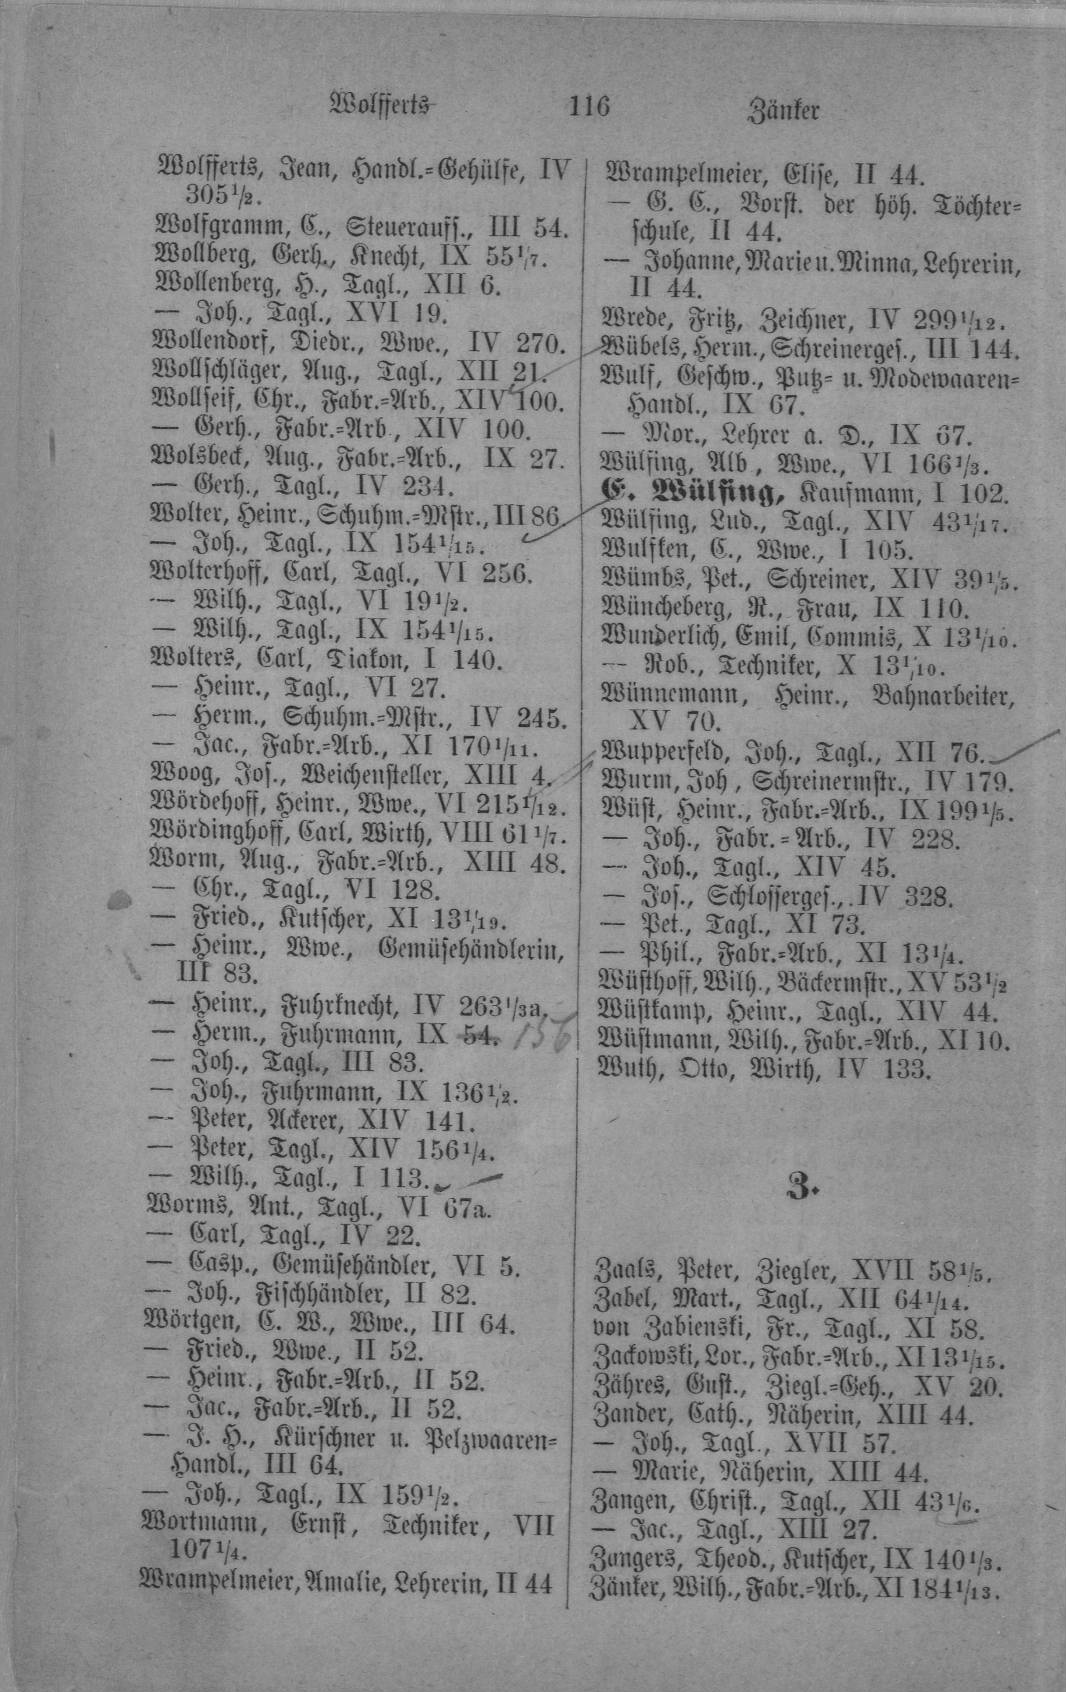 Wolfferts
116
Zänker
Wolfferts, Jean, Handl.=Gehülfe, IV
305 1/2.
Wolfgramm, C., Steuerauff., III 54.
Wollberg, Gerh., Knecht, IX 55 1/7.
Wollenberg, H., Tagl., XII 6.
— Joh., Tagl., XVI 19.
Wollendorf, Diedr., Wwe., IV 270.
Wollschläger, Aug., Tagl., XII 21.
Wollseif, Chr., Fabr.=Arb., XIV 100.
— Gerh., Fabr.=Arb., XIV 100.
Wolsbeck, Aug., Fabr.=Arb., IX 27.
— Gerh., Tagl., IV 234.
Wolter, Heinr., Schuhm.=Mstr., III 86
— Joh., Tagl., IX 154 1/15.
Wolterhoff, Carl, Tagl., VI 256.
— Wilh., Tagl., VI 19 1/2.
— Wilh., Tagl., IX 154 1/15.
Wolters, Carl, Diakon, I 140.
— Heinr., Tagl., VI 27.
— Herm., Schuhm.=Mstr., IV 245.
— Jac., Fabr.=Arb., XI 170 1/11.
Woog, Jos., Weichensteller, XIII 4.
Wördehoff, Heinr., Wwe., VI 215 1/12.
Wördinghoff, Carl, Wirth, VIII 61 1/7.
Worm, Aug., Fabr.=Arb., XIII 48.
— Chr., Tagl., VI 128.
— Fried., Kutscher, XI 13 1/19.
— Heinr., Wwe., Gemüsehändlerin,
III 83.
— Heinr., Fuhrknecht, IV 263 1/3a.
— Herm., Fuhrmann, IX 54. 156
— Joh., Tagl., III 83.
— Joh., Fuhrmann, IX 136 1/2.
— Peter, Ackerer, XIV 141.
— Peter, Tagl., XIV 156 1/4.
— Wilh., Tagl., I 113.
Worms, Ant., Tagl., VI 67a.
— Carl, Tagl., IV 22.
— Casp., Gemüsehändler, VI 5.
— Joh., Fischhändler, II 82.
Wörtgen, C. W., Wwe., III 64.
— Fried., Wwe., II 52.
— Heinr., Fabr.=Arb., II 52.
— Jac., Fabr.=Arb., II 52.
— J. H., Kürschner u. Pelzwaaren=
Handl., III 64.
— Joh., Tagl., IX 159 1/2.
Wortmann, Ernst, Techniker, VII
107 1/4.
Wrampelmeier, Amalie, Lehrerin, II 44
Wrampelmeier, Elise, II 44.
— G. C., Vorst. der höh. Töchter=
schule, II 44.
— Johanne, Marie u. Minna, Lehrerin,
II 44.
Wrede, Fritz, Zeichner, IV 299 1/12.
Wübels, Herm., Schreinerges., III 144.
Wulf, Geschw., Putz= u. Modewaaren=
Handl., IX 67.
— Mor., Lehrer a. D., IX 67.
Wülfing, Alb., Wwe., VI 166 1/3.
E. Wülfing, Kaufmann, I 102.
Wülfing, Lud., Tagl., XIV 43 1/17.
Wulften, C., Wwe., I 105.
Wümbs, Pet., Schreiner, XIV 39 1/5.
Wüncheberg, R., Frau, IX 110.
Wunderlich, Emil, Commis, X 13 1/10.
— Rob., Techniker, X 13 1/10.
Wünnemann, Heinr., Bahnarbeiter,
XV 70.
Wupperfeld, Joh., Tagl., XII 76.
Wurm, Joh, Schreinermstr., IV 179.
Wüst, Heinr., Fabr.=Arb., IX 199 1/5.
— Joh., Fabr.=Arb., IV 228.
— Joh., Tagl., XIV 45.
— Jos., Schlosserges., IV 328.
— Pet., Tagl., XI 73.
— Phil., Fabr.=Arb., XI 13 1/4.
Wüsthoff, Wilh., Bäckermstr., XV 53 1/2
Wüstkamp, Heinr., Tagl., XIV 44.
Wüstmann, Wilh., Fabr.=Arb., XI 10.
Wuth, Otto, Wirth, IV 133.
Z.
Zaals, Peter, Ziegler, XVII 58 1/5.
Zabel, Mart., Tagl., XII 64 1/14.
von Zabienski, Fr., Tagl., XI 58.
Zackowski, Lor., Fabr.=Arb., XI 13 1/15.
Zähres, Gust., Ziegl.=Geh., XV 20.
Zander, Cath., Näherin, XIII 44.
— Joh., Tagl., XVII 57.
— Marie, Näherin, XIII 44.
Zangen, Christ., Tagl., XII 43 1/6.
— Jac., Tagl., XIII 27.
Zangers, Theod., Kutscher, IX 140 1/3.
Zänker, Wilh., Fabr.=Arb., XI 184 1/13.